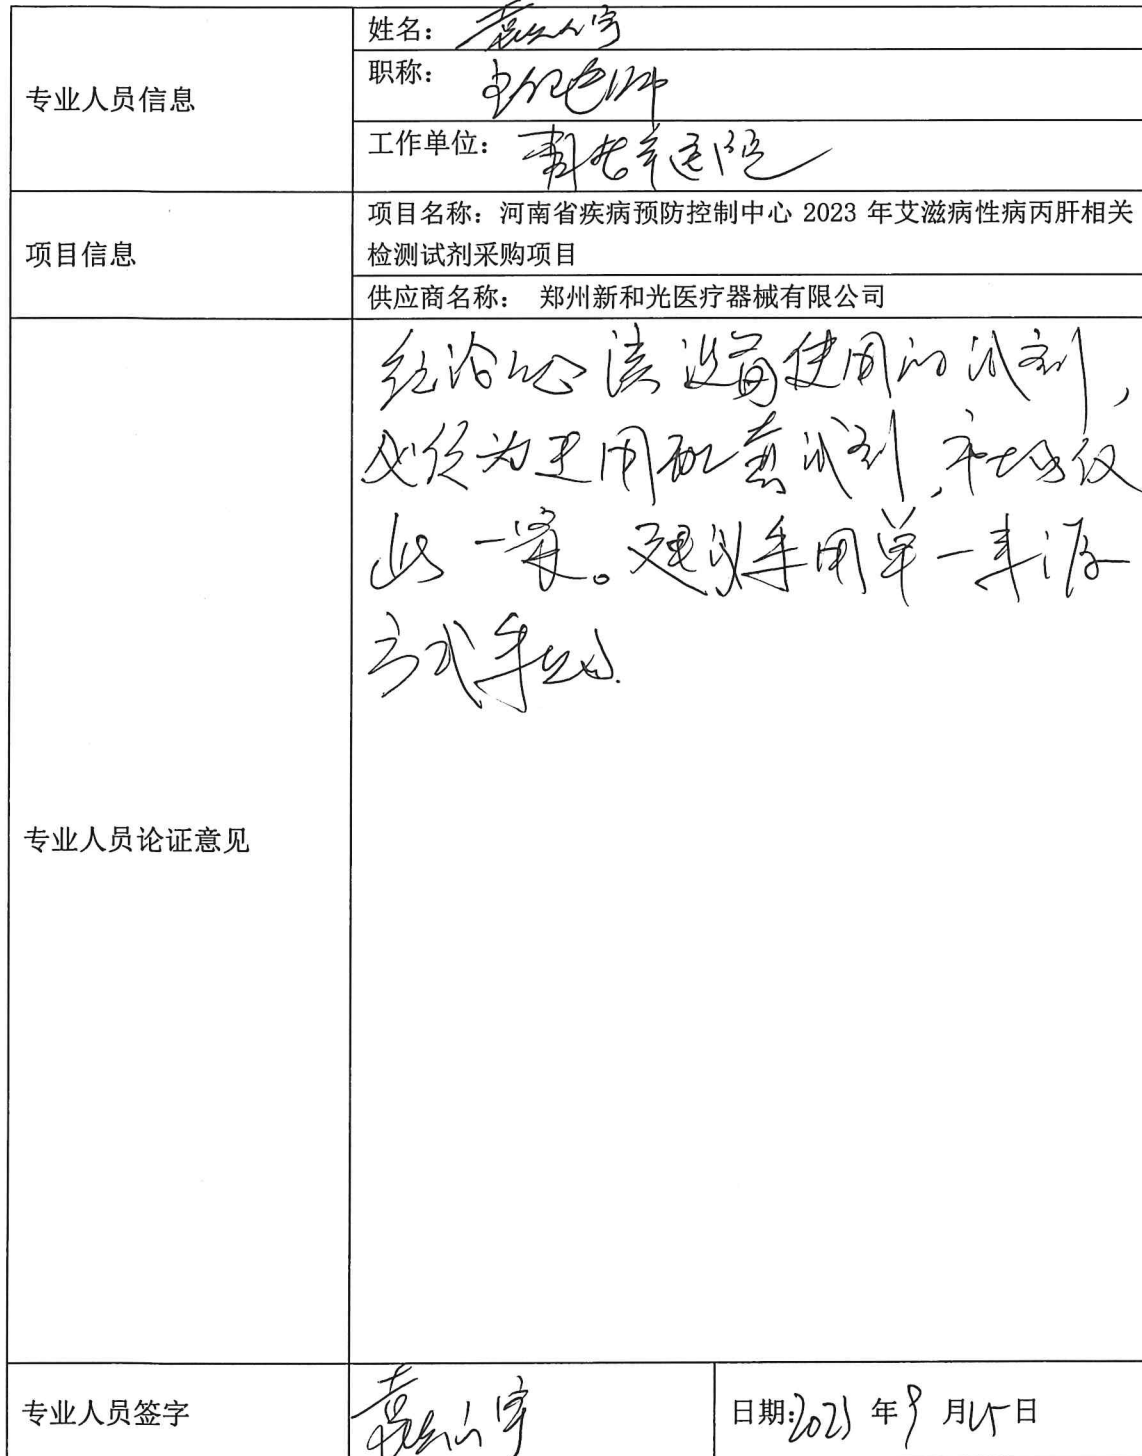 专业人员信息
姓名：
职称：
工作单位：
项目信息
项目名称：河南省疾病预防控制中心 2023 年艾滋病性病丙肝相关
检测试剂采购项目
供应商名称： 郑州新和光医疗器械有限公司
专业人员论证意见
经论证 该设备使用的试剂，
必须为专用配套试剂，市场仅
此一家。建议采用单一来源
方式采购.
专业人员签字
日期:2023 年 9 月 日